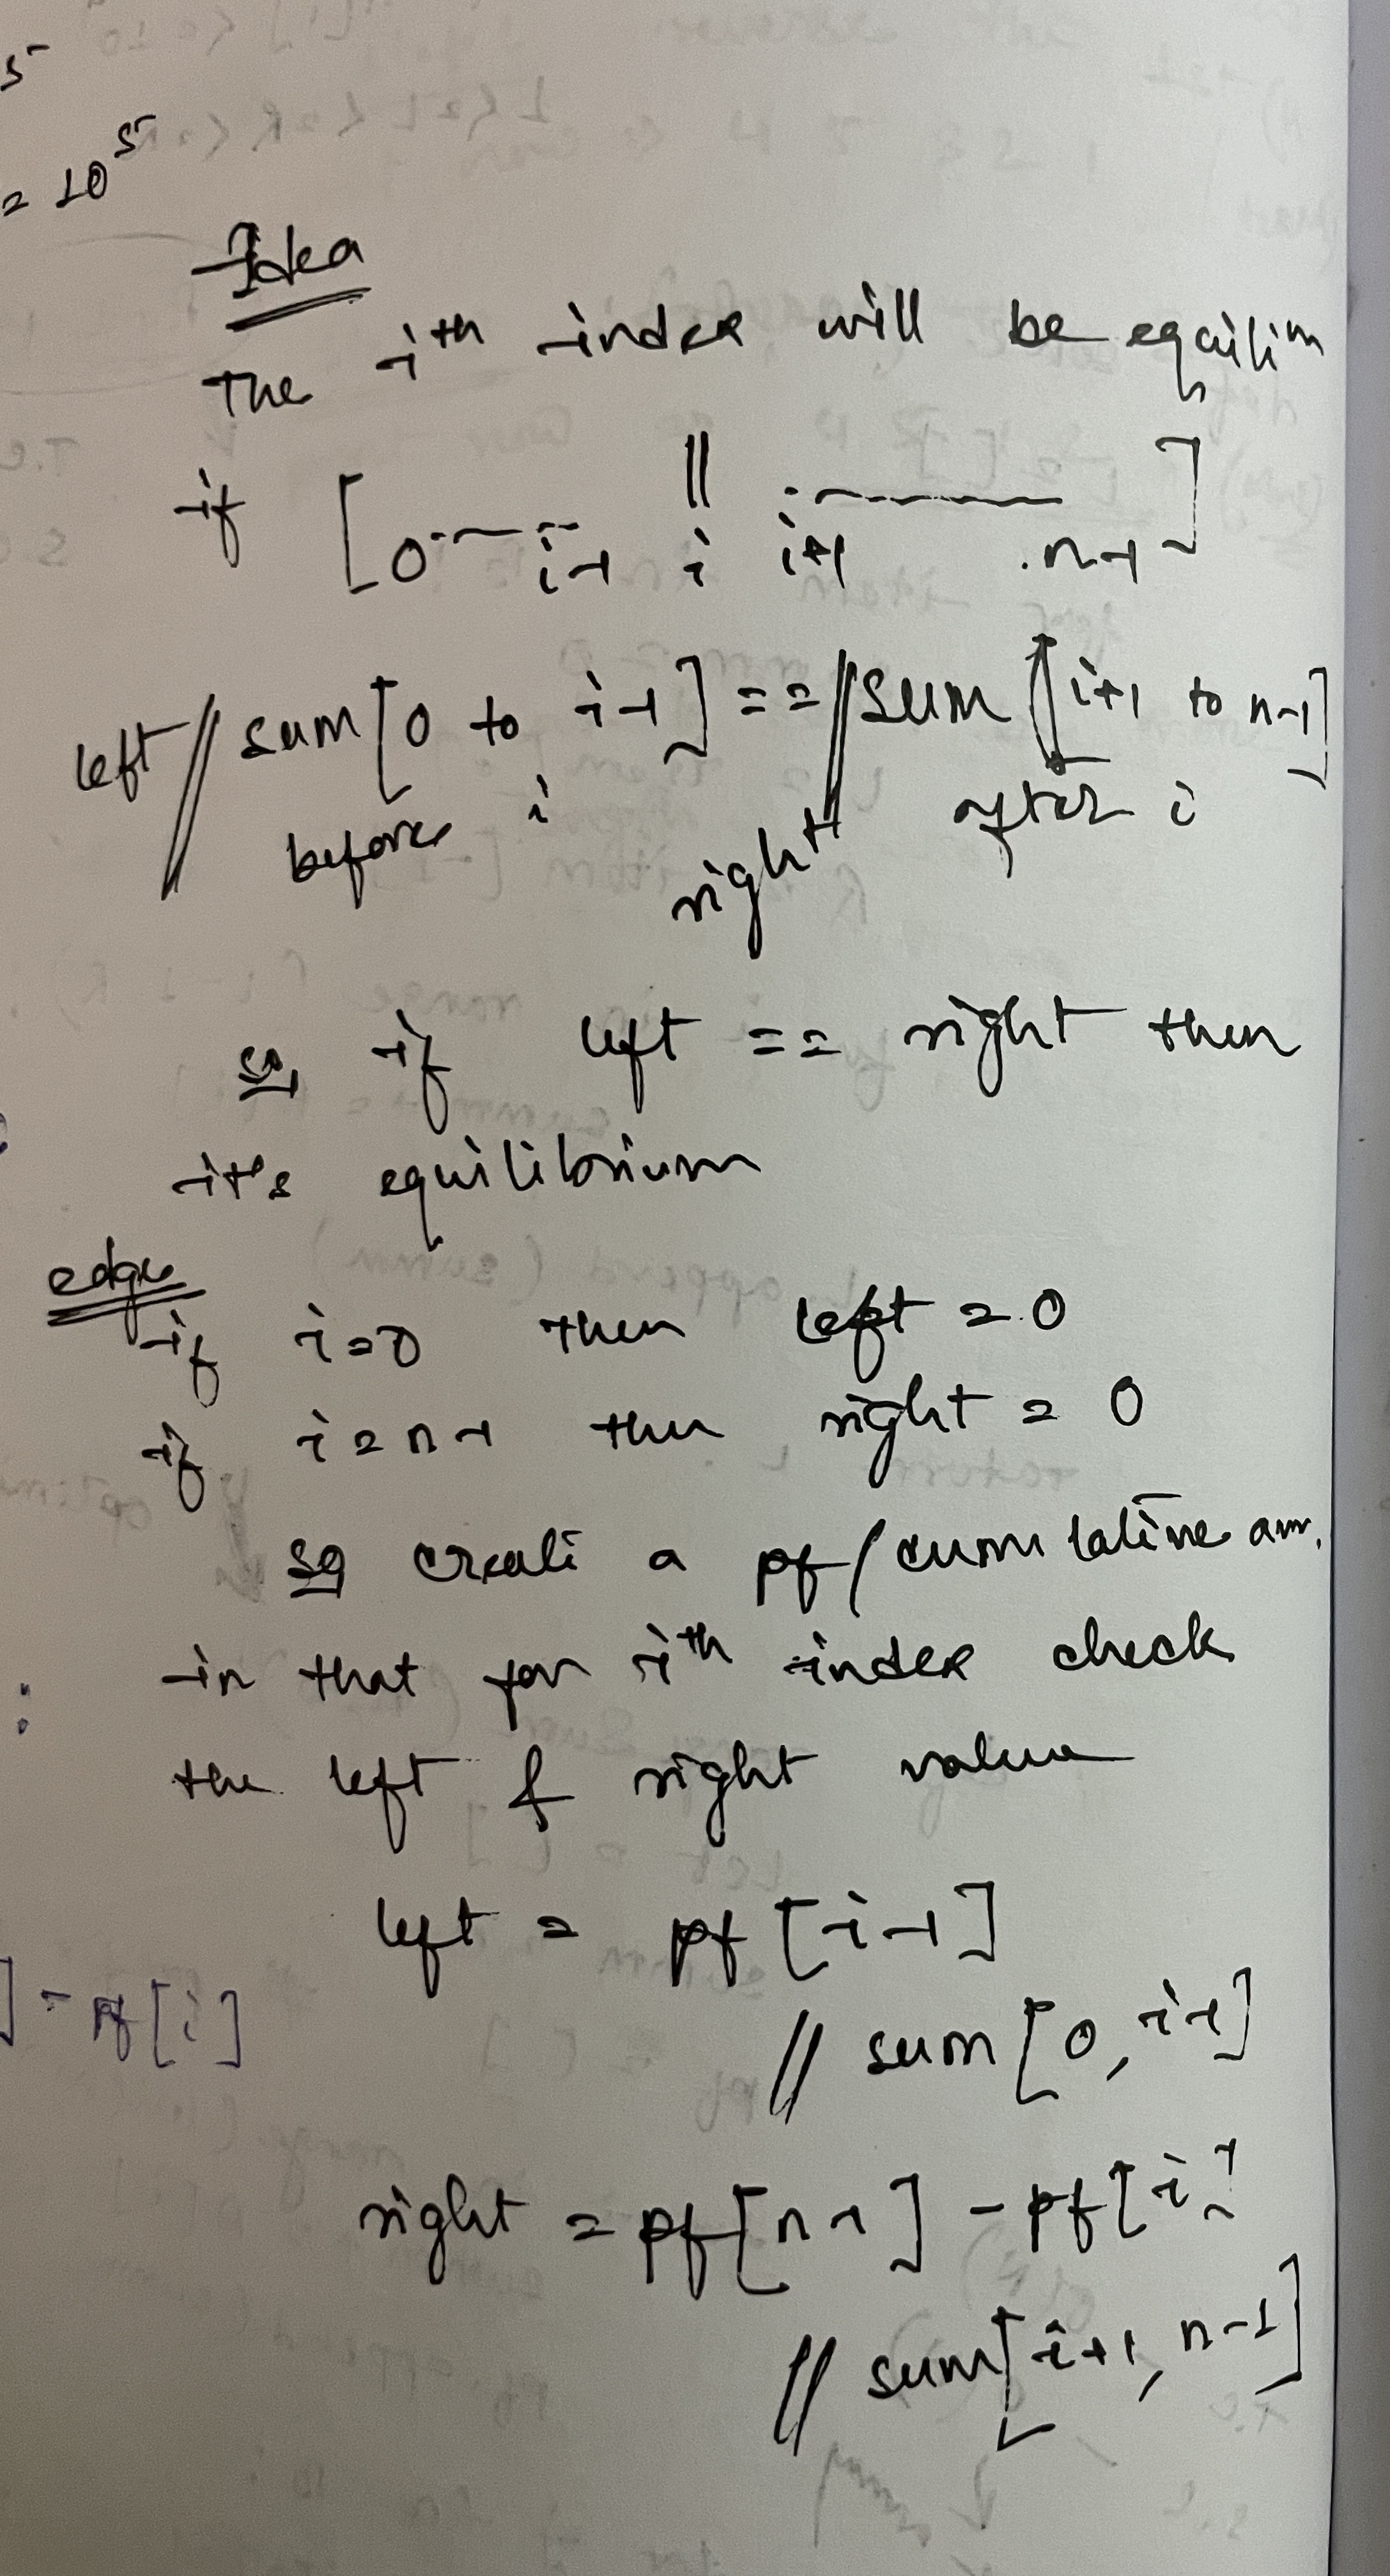 5
= 10^5
Idea
The ith index will be equilim
if [0 --- i-1 i i+1 ------ n-1]
left // sum[0 to i-1] == // sum [i+1 to n-1]
before i right after i
so, if left == right then
it's equilibrium
edge
if i=0 then left = 0
if i=n-1 then right = 0
so create a pf/cumulative arr.
in that for ith index check
:
the left & right value
left = pf[i-1]
] - pf[i]
// sum[0, i-1]
right = pf[n-1] - pf[i]
// sum[i+1, n-1]